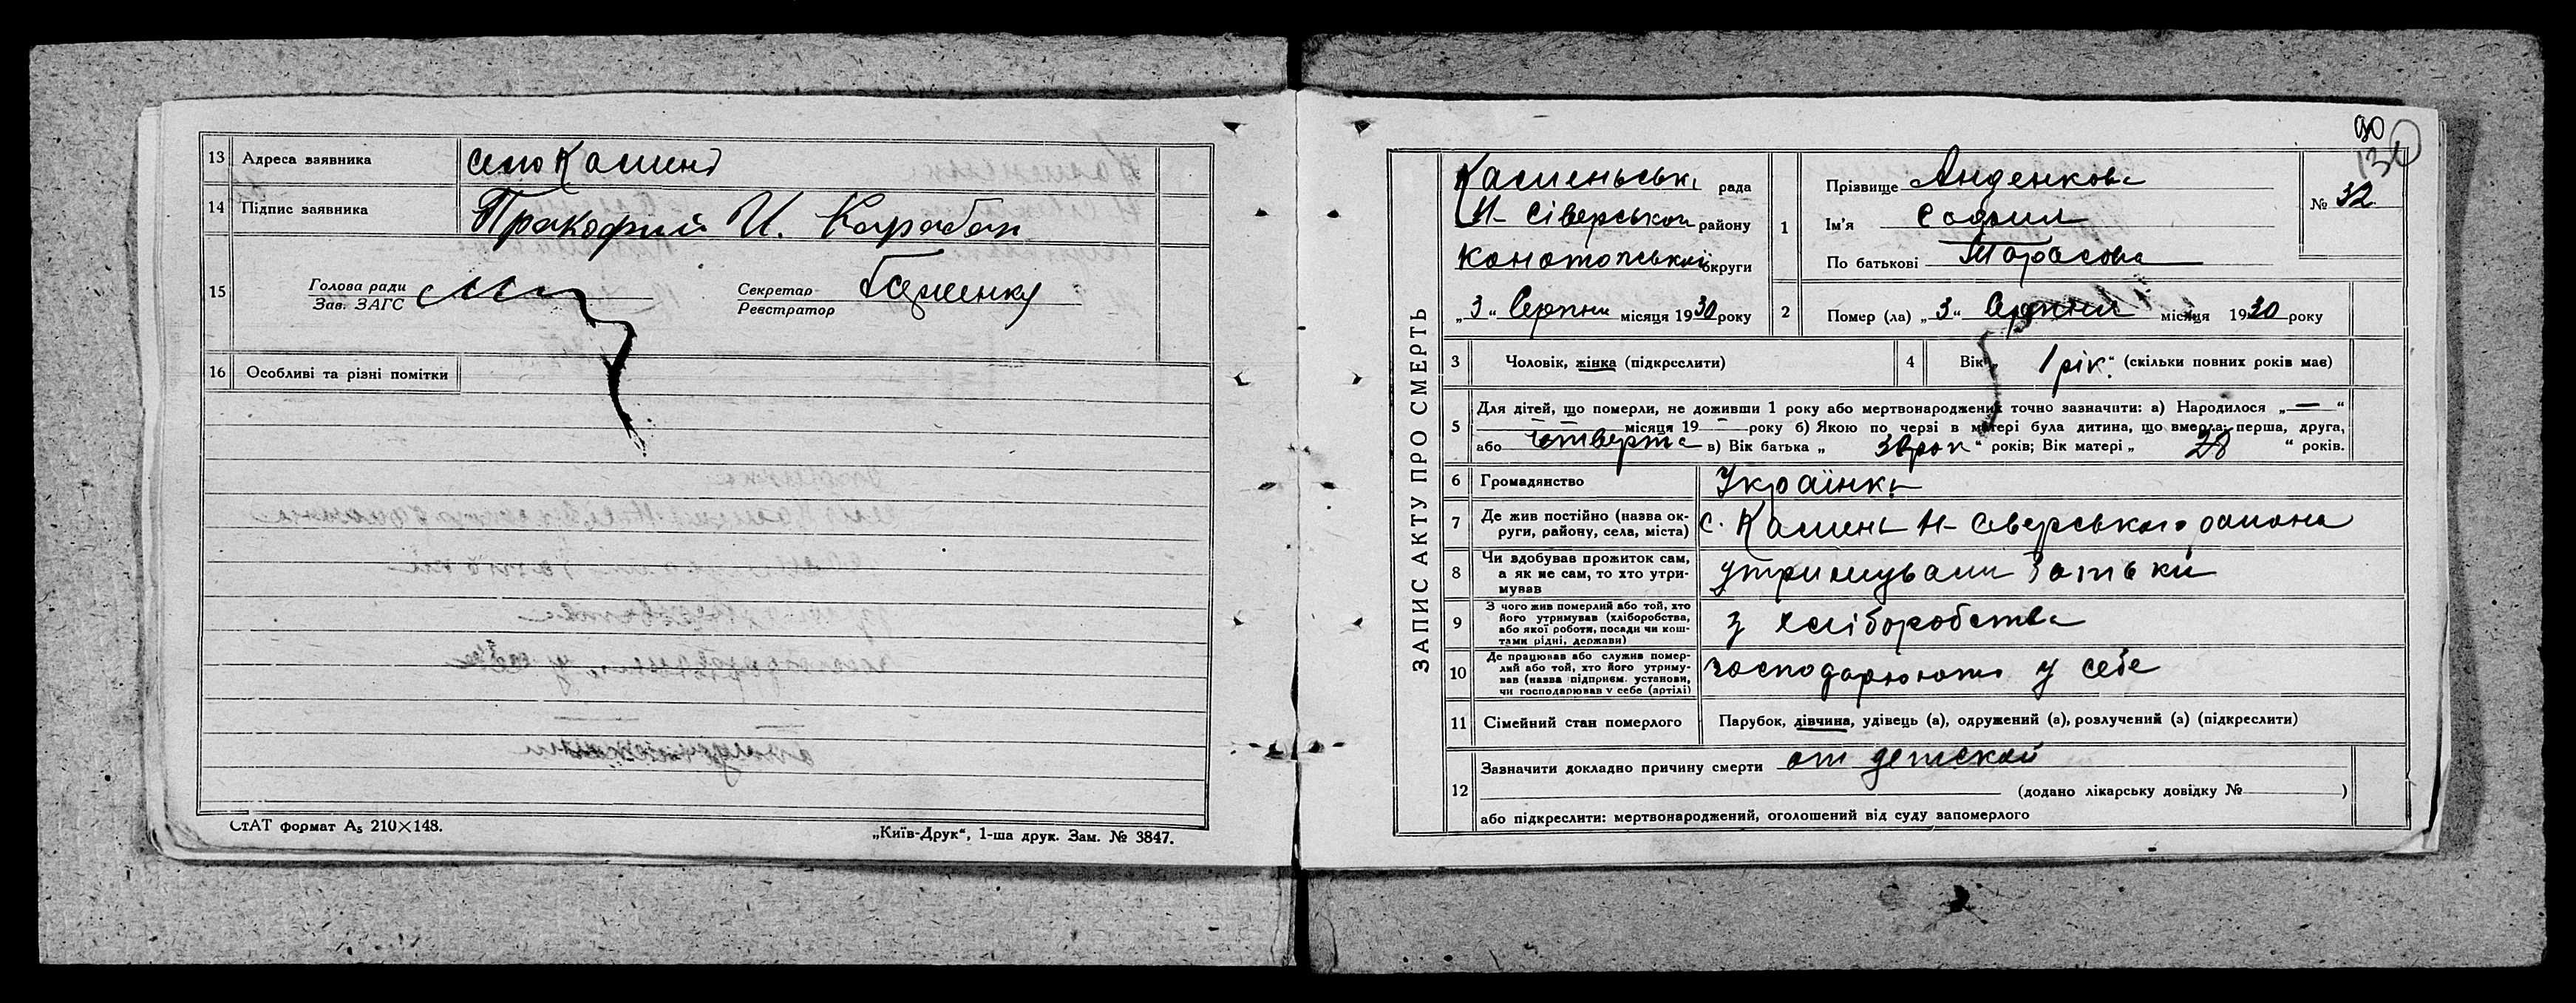 13 Адреса заявника село Камень
14 Підпис заявника Прокофий И. Карабан
15 Голова ради
Зав. ЗАГС
Секретар
Реєстратор
16 Особливі та різні помітки
СтАТ формат А₅ 210×148.
„Київ-Друк“, 1-ша друк. Зам. № 3847.
90
134
ЗАПИС АКТУ ПРО СМЕРТЬ
Каменьська рада
Н-Сіверського району
Конотопської округи
„3“ Серпня місяця 1930 року
1 Прізвище Анденкова
Ім'я София
По батькові Тарасова
№ 32
2 Помер (ла) „3“ Серпня місяця 1930 року
3 Чоловік, жінка (підкреслити)
4 Вік „1 рік“ (скільки повних років має)
5 Для дітей, що померли, не доживши 1 року або мертвонароджених точно зазначити: а) Народилося „—“
місяця 19— року б) Якою по черзі в матері була дитина, що вмерла: перша, друга,
або четверта в) Вік батька „ “ років; Вік матері „28“ років.
6 Громадянство Українка
7 Де жив постійно (назва округи, району, села, міста) с. Камень Н-Сіверського района
8 Чи здобував прожиток сам,
а як не сам, то хто утримував утримували батьки
9 З чого жив померлий або той, хто
його утримував (хліборобства,
або якої роботи, посади чи коштами рідні, держави) з хліборобства
10 Де працював або служив померлий або той, хто його утримував (назва підприєм. установи,
чи господарював у себе (артілі) господарюють у себе
11 Сімейний стан померлого Парубок, дівчина, удівець (а), одружений (а), розлучений (а) (підкреслити)
12 Зазначити докладно причину смерти от детской
(додано лікарську довідку № )
або підкреслити: мертвонароджений, оголошений від суду запомерлого